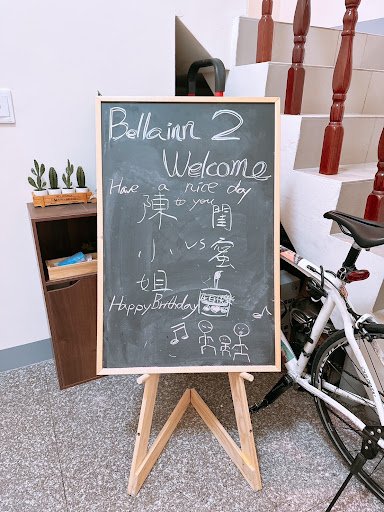 Bellainn 2
Welcome
Have a nice day
to you
陳小姐 vs 閨蜜
Happy Birthday